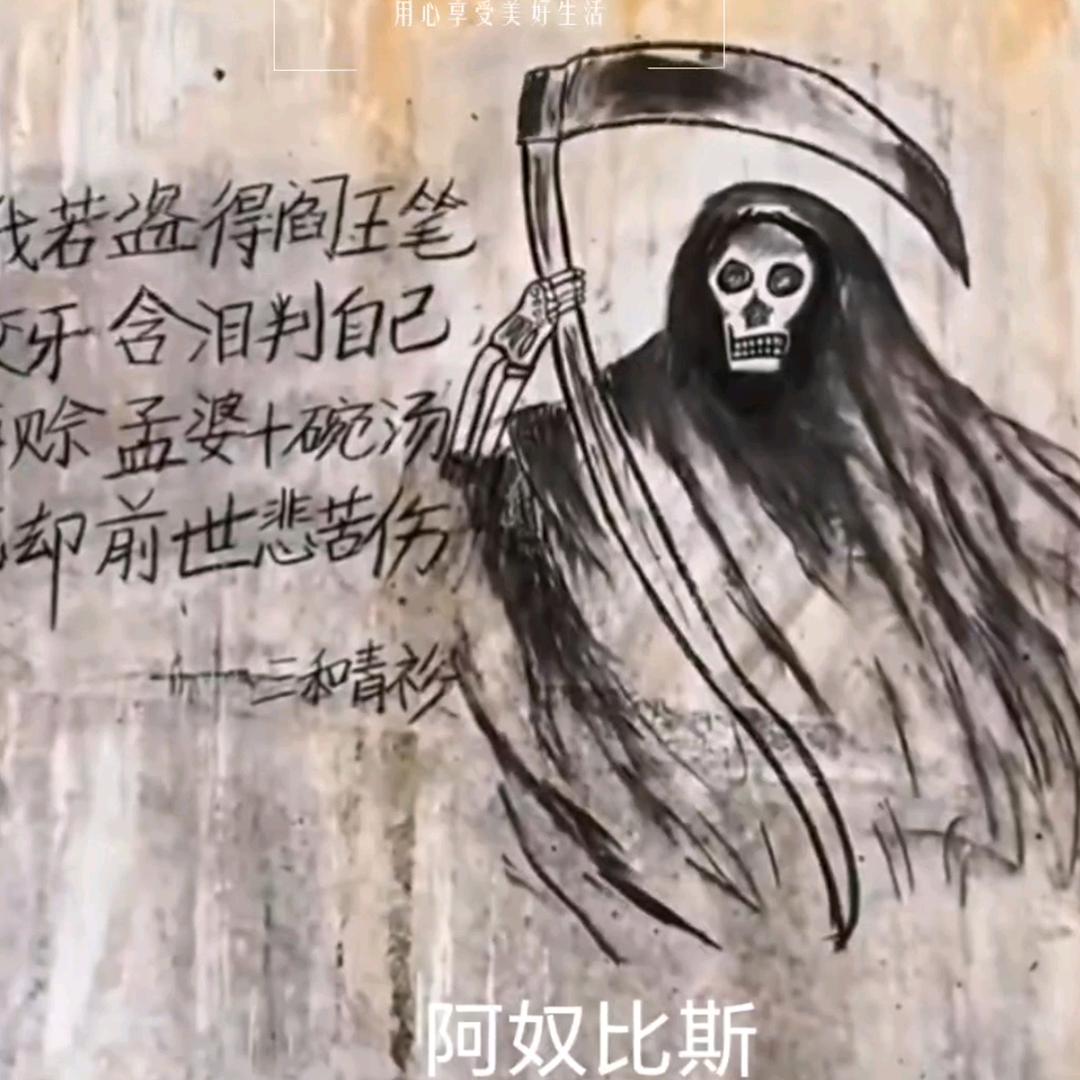 用心享受美好生活
我若盗得阎王笔
牙含泪判自己
赊孟婆十碗汤
却前世悲苦伤
——三和青衫
阿奴比斯